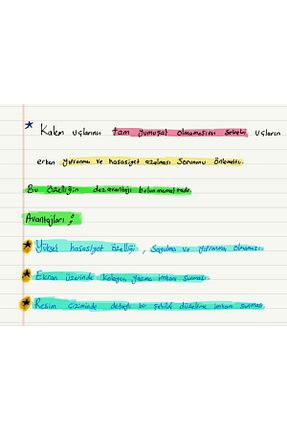 * Kalem uçlarının tam yumuşak olmamasının sebebi uçların
erken yıpranma ve hassasiyet azalması sorununu önlemektir.
Bu özelliğin dezavantajı bulunmamaktadır.
Avantajları ;
* Yüksek hassasiyet özelliği, ve yıpranma olmaması
* Ekran üzerinde kolayca yazma imkanı sunması
* Resim çiziminde detaylı bir şekilde düzeltme imkanı sunması